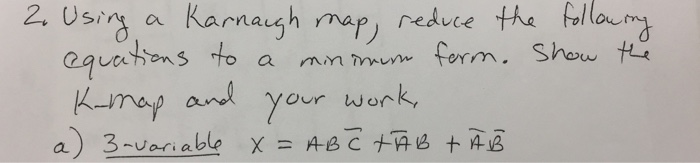 2. Using a Karnaugh map, reduce the following
equations to a minimum form. Show the
K-map and your work.
a) 3-variable X = ABC̅ + A̅B + A̅B̅